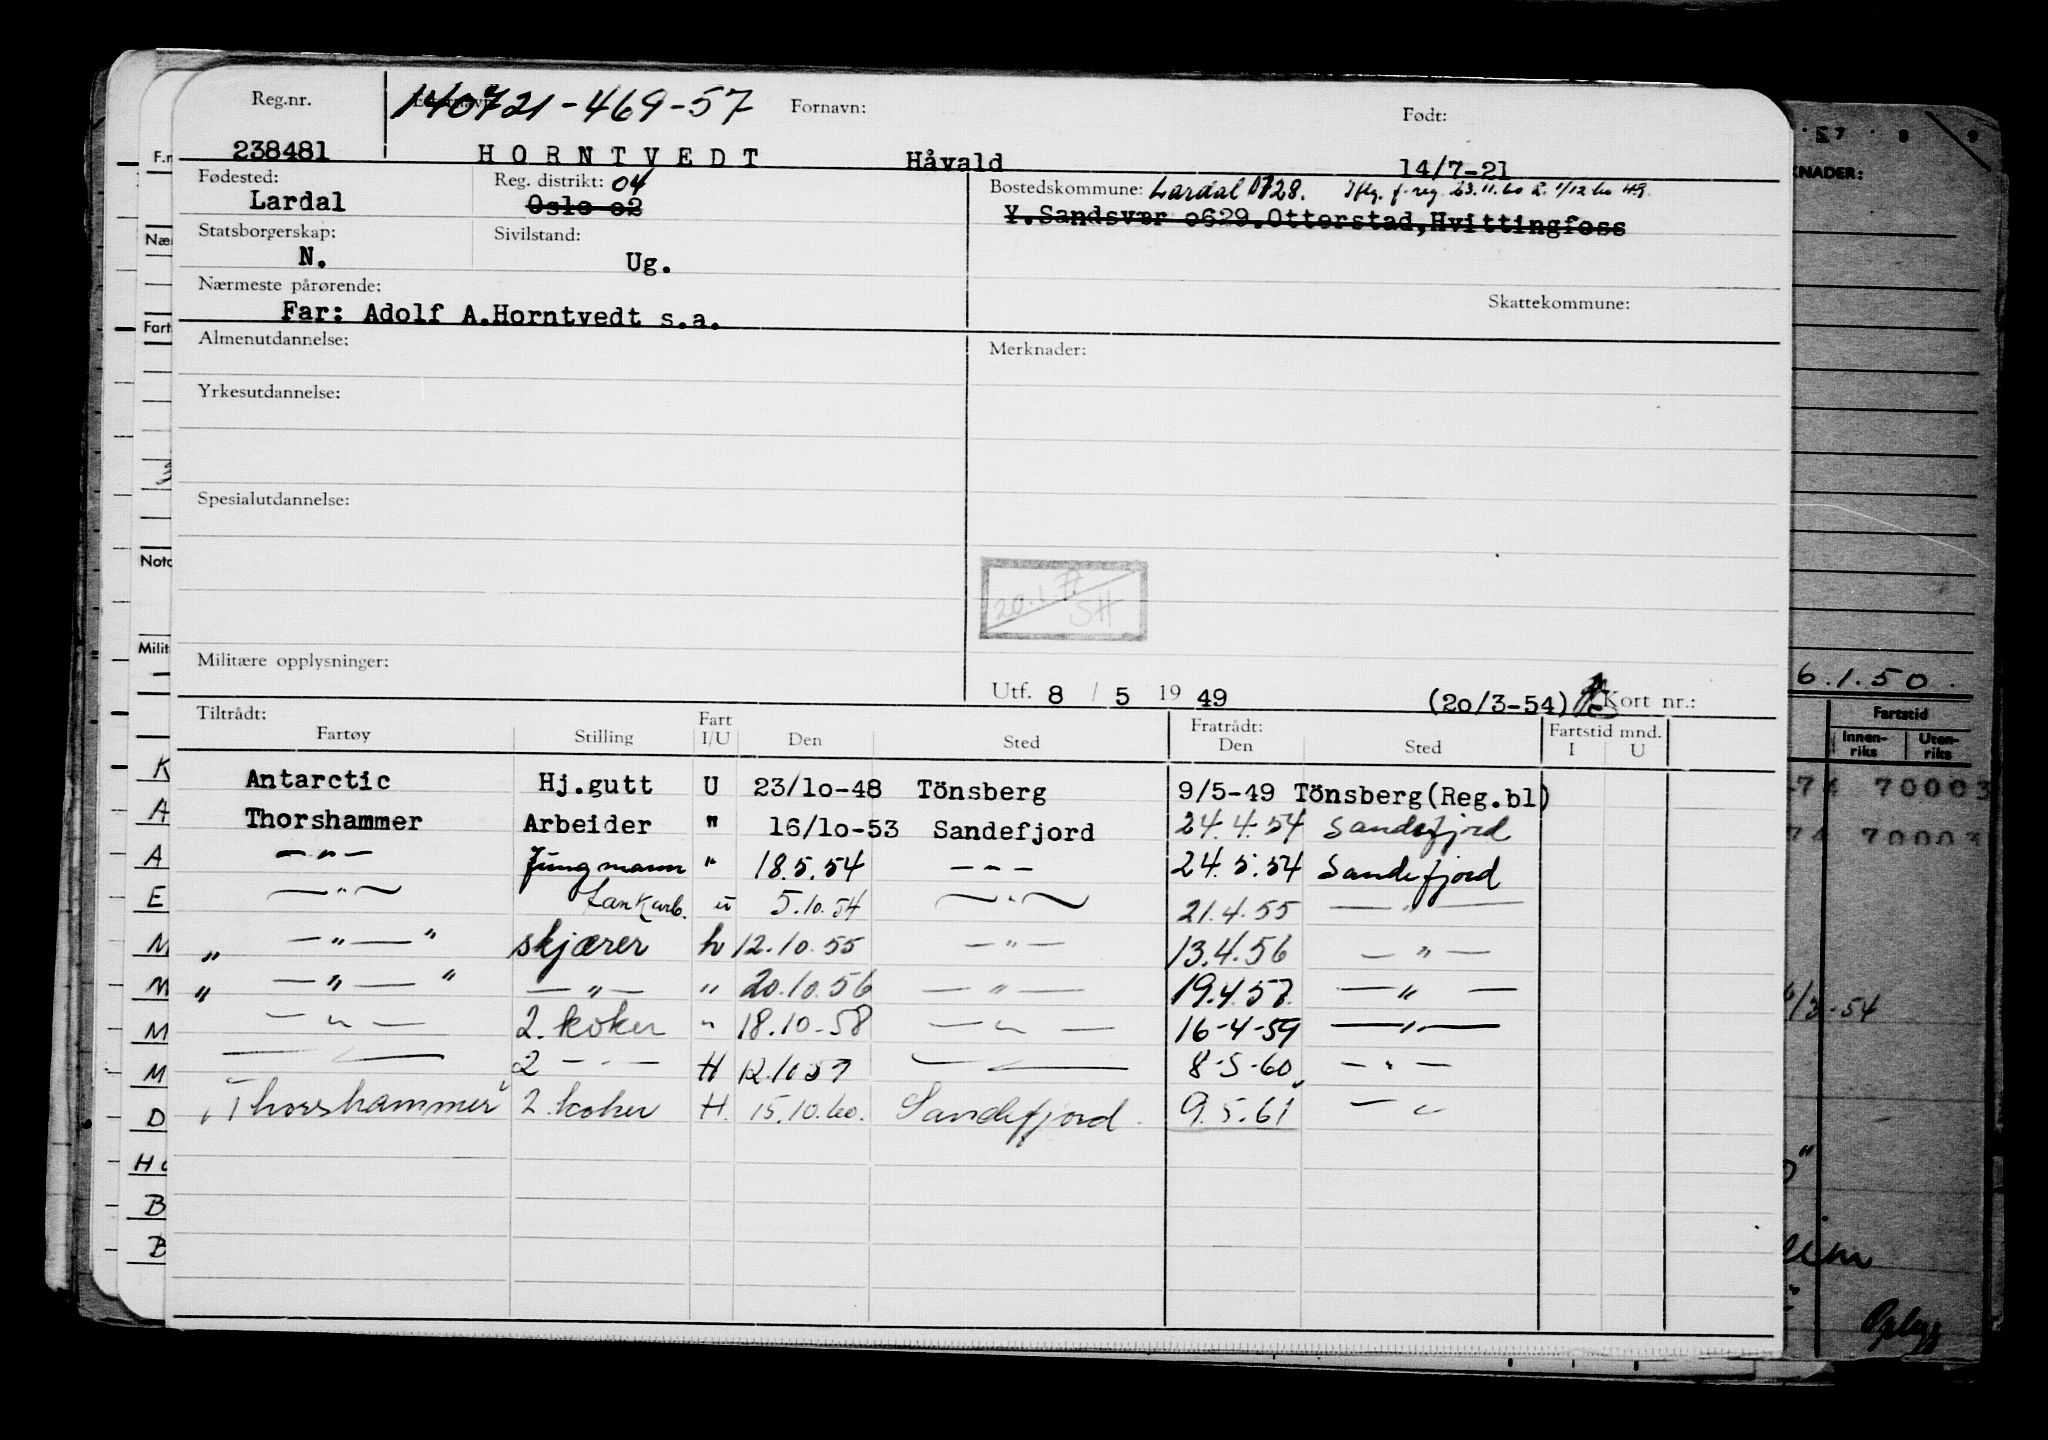 Reg.nr. 140721-469-57 Fornavn: Født:
238481 HORNTVEDT Håvald 14/7-21
Fødested: Reg. distrikt: 04 Bostedskommune: Lardal 0728. Iflg. f. reg. 23.11.60 1/12 60 Hg.
Lardal Oslo o2 Y.Sandsvær o629.Otterstad,Hvittingfoss
Statsborgerskap: Sivilstand:
N. Ug.
Nærmeste pårørende: Skattekommune:
Far: Adolf A.Horntvedt s.a.
Almenutdannelse: Merknader:
Yrkesutdannelse:
Spesialutdannelse:
20.1.77
SH
Militære opplysninger:
Utf. 8 / 5 19 49 (20/3-54) Kort nr.:
Tiltrådt: Fart Fratrådt: Fartstid mnd.
Fartøy Stilling I/U Den Sted Den Sted I U
Antarctic Hj.gutt U 23/1o-48 Tönsberg 9/5-49 Tönsberg(Reg.bl)
Thorshammer Arbeider " 16/1o-53 Sandefjord 24.4.54 Sandefjord
— " — Jungmann " 18.5.54 — — — 24.5.54 Sandefjord
— " — Tankarb. " 5.10.54 — " — 21.4.55 — " —
" — " — " skjærer h 12.10.55 — " — 13.4.56 — " —
" — " — " — " — " 20.10.56 — " — 19.4.57. — " —
— " — 2. koker " 18.10-58 — " — 16-4-59 — " —
— " — 2 — " — H 12.10 59 — " — 8-5-60 — " —
"Thorshammer" 2. koker H. 15.10.60. Sandefjord. 9.5.61 — " —
KNADER:
6.1.50.
Fartstid
Innen-
riks
Uten-
riks
74 70003
74 70003
/3-54
F.n
Nær
Fart
Nota
Milit
K
A
A
E
M
M
M
M
D
H
B
B